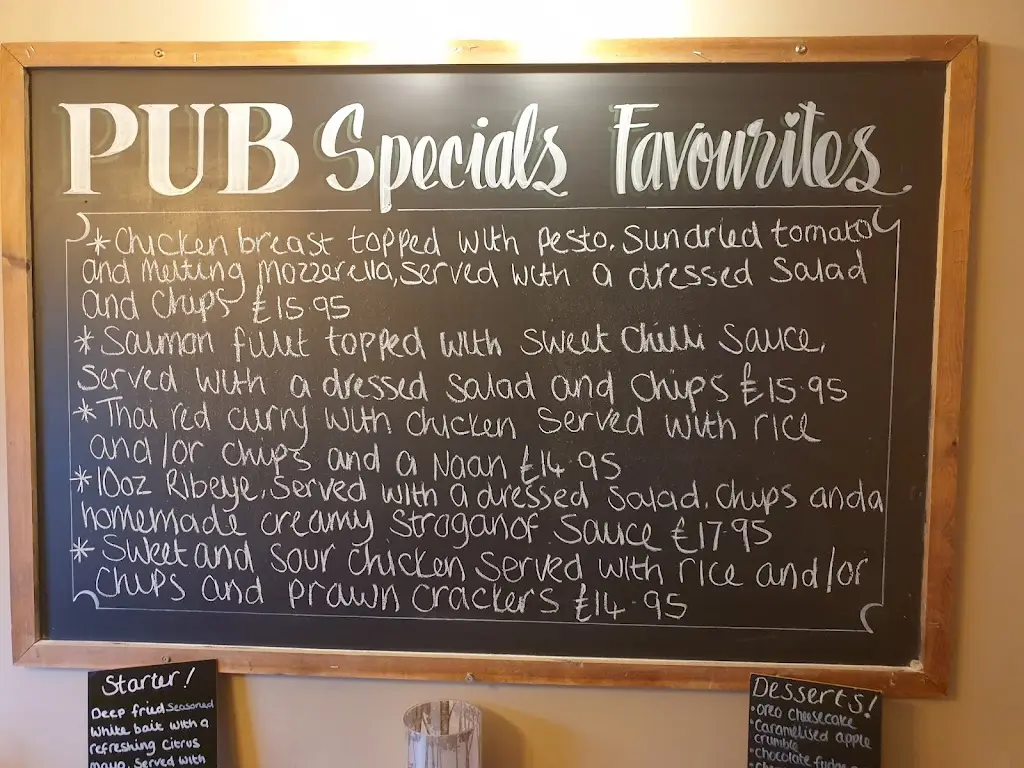 PUB Specials Favourites
* Chicken breast topped with pesto, sundried tomato
and melting mozzerella, served with a dressed salad
and chips £15.95
* Salmon fillet topped with sweet chilli sauce,
served with a dressed salad and chips £15.95
* Thai red curry with chicken served with rice
and/or chips and a Naan £14.95
* 10oz Ribeye, served with a dressed salad, chips and a
homemade creamy stroganof sauce £17.95
* Sweet and sour chicken served with rice and/or
chips and prawn crackers £14.95
Starter!
Deep fried seasoned
white bait with a
refreshing citrus
mayo, served with
Desserts!
• oreo cheesecake
• Caramelised apple
crumble
• chocolate fudge